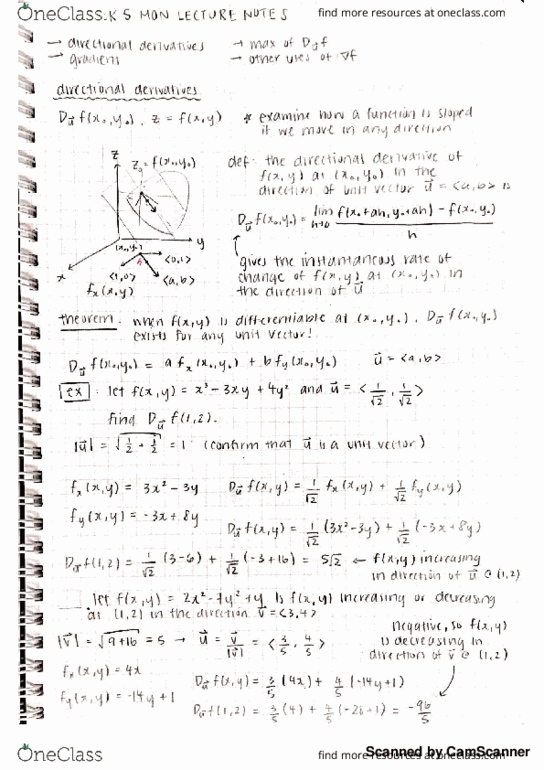 OneClass
find more resources at oneclass.com
K 5 MON LECTURE NOTES
→ directional derivatives → max of D_u⃗ f
→ gradient → other uses of ∇f
directional derivatives
D_u⃗ f(x₀,y₀), z = f(x,y) * examine how a function is sloped
if we move in any direction
z z₀=f(x₀,y₀)
def: the directional derivative of
f(x,y) at (x₀,y₀) in the
direction of unit vector u⃗ = <a,b> is
D_u⃗ f(x₀,y₀) = lim h→0 f(x₀+ah, y₀+ah) - f(x₀,y₀) / h
(x₀,y₀) y
<0,1>
x <1,0> <a,b>
f_x(x,y)
gives the instantaneous rate of
change of f(x,y) at (x₀,y₀) in
the direction of u⃗
theorem: when f(x,y) is differentiable at (x₀,y₀), D_u⃗ f(x₀,y₀)
exists for any unit vector!
D_u⃗ f(x₀,y₀) = a f_x(x₀,y₀) + b f_y(x₀,y₀) u⃗ = <a,b>
ex: let f(x,y) = x³ - 3xy + 4y² and u⃗ = <1/√2, 1/√2>
find D_u⃗ f(1,2).
|u⃗| = √(1/2 + 1/2) = 1 (confirm that u⃗ is a unit vector)
f_x(x,y) = 3x² - 3y D_u⃗ f(x,y) = 1/√2 f_x(x,y) + 1/√2 f_y(x,y)
f_y(x,y) = -3x + 8y
D_u⃗ f(x,y) = 1/√2 (3x²-3y) + 1/√2 (-3x+8y)
D_u⃗ f(1,2) = 1/√2 (3-6) + 1/√2 (-3+16) = 5√2 ← f(x,y) increasing
in direction of u⃗ @ (1,2)
let f(x,y) = 2x² - 7y² + y. Is f(x,y) increasing or decreasing
at (1,2) in the direction v⃗ = <3,4>
negative, so f(x,y)
is decreasing in
direction of v⃗ @ (1,2)
|v⃗| = √9+16 = 5 → u⃗ = v⃗/|v⃗| = <3/5, 4/5>
f_x(x,y) = 4x
D_u⃗ f(x,y) = 3/5 (4x) + 4/5 (-14y+1)
f_y(x,y) = -14y + 1
D_u⃗ f(1,2) = 3/5 (4) + 4/5 (-28+1) = -96/5
OneClass
find more resources at oneclass.com
Scanned by CamScanner